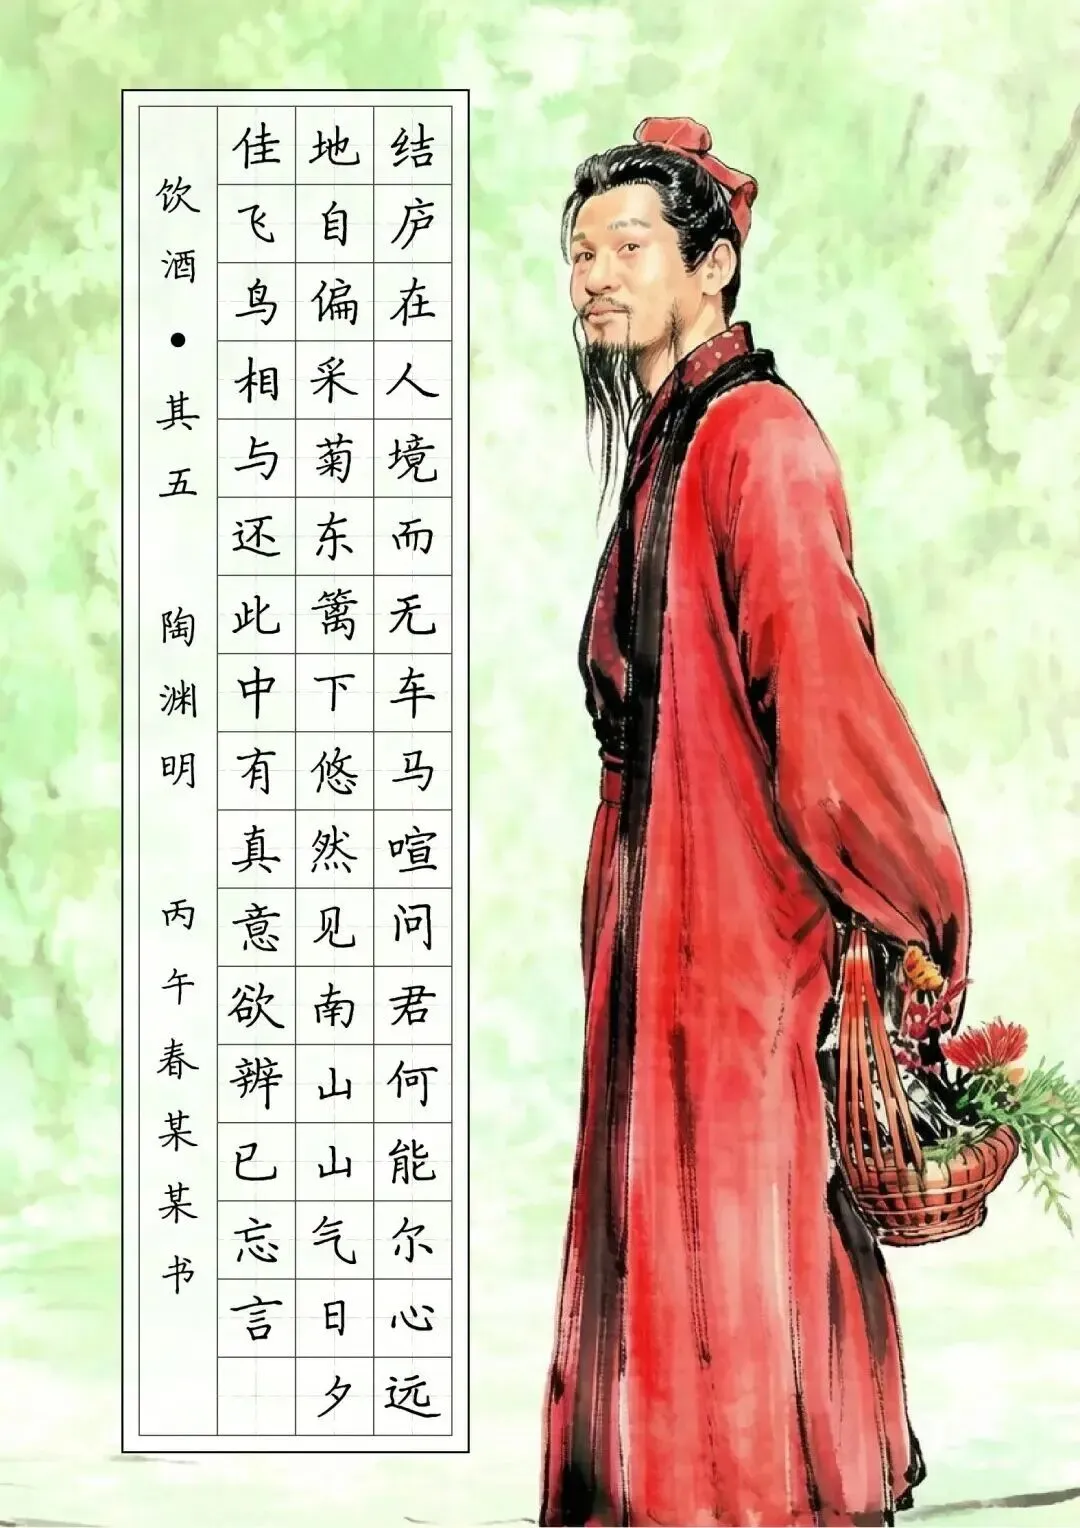 结庐在人境而无车马喧问君何能尔心远
地自偏采菊东篱下悠然见南山山气日夕
佳飞鸟相与还此中有真意欲辨已忘言
饮酒·其五 陶渊明 丙午春某某书